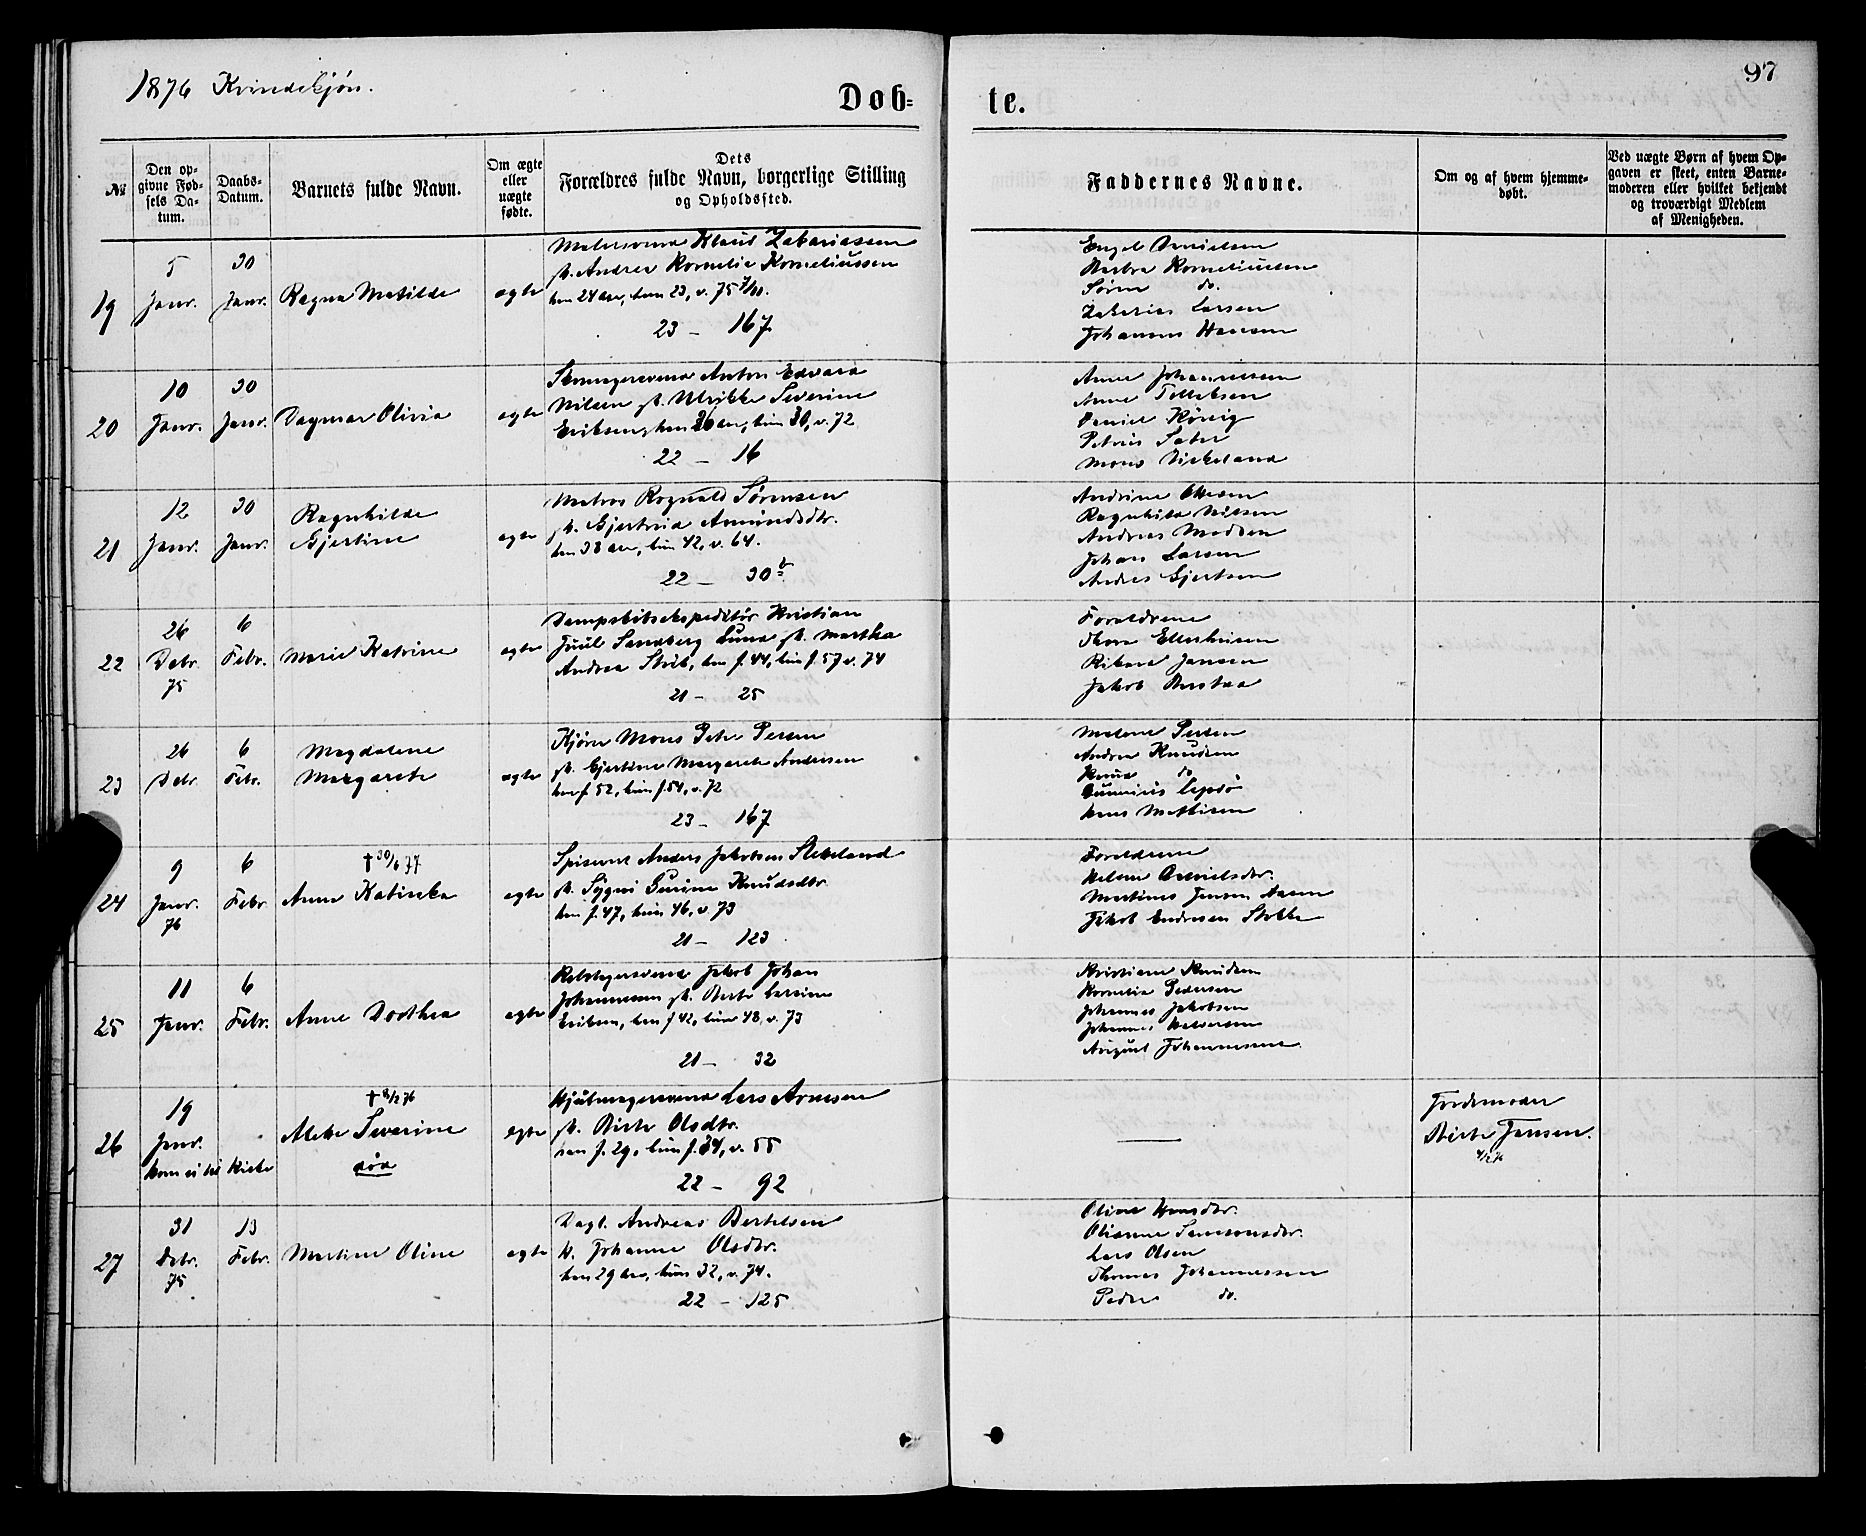 1876 Kvindekjøn.
Døb-
te.
97
№
Den op-
givne Fød-
sels Da-
tum.
Daabs-
Datum.
Barnets fulde Navn.
Om ægte
eller
uægte
fødte.
Dets
Forældres fulde Navn, borgerlige Stilling
og Opholdssted.
Faddernes Navne.
Om og af hvem hjemme-
døbt.
Ved uægte Børn af hvem Op-
gaven er skeet, enten Barne-
moderen eller hvilket bekjendt
og troværdigt Medlem
af Menigheden.
19
5
Janr.
30
Janr.
Ragna Matilde
egte
Malersvend Klaus Zakariassen
Andrea Kornelia Korneliussen
han 24 aar, hun 23, v. 75
23 – 167
Engel Danielsen
Korneliussen
Søren do.
Zakarias Larsen
Johannes Hansen
20
10
Janr.
30
Janr.
Dagmar Olivia
egte
Anton Edvard
Nilsen Ulrikke Severine
Eriksen, han 26 aar, hun 30, v. 72
22 – 16
Anne Johannessen
Anne Tollefsen
Daniel Kønig
Petrus
Mons Birkeland
21
12
Janr.
30
Janr.
Ragnhilde
Gjertine
egte
Matros Rognald Sørensen
Gjertrud Amundsdtr.
han 38 aar, hun 42, v. 64.
22 – 30 b
Andrine
Ragnhild Nilsen
Andreas Madsen
Johan Larsen
Andreas Gjertsen
22
26
Debr.
75
6
Febr.
Marie Katrine
egte
Dampskibsekspeditør Kristian
Juul Sandberg Lund Martha
Andrea han f. 44, hun f. 57 v. 74
21 – 25
Forældrene
Thora
Rikard Jansen
Jakob
23
26
Debr.
6
Febr.
Magdalene
Margarete
egte
Kjører Mons Peter Persen
Gjertine Margarete Andersen
han f. 52, hun f. 54, v. 72
23 – 167
Malene Persen
Andrea Knudsen
Knud do
Hans Mathisen
24
9
Janr.
76
6
Febr.
† 30/6 77
Anna Katinka
egte
Anders Jakobsen
Sygni Gurine Knudsdtr.
han f. 47, hun 46, v. 73
21 – 123
Forældrene
Helene
Martines Jensen Aasen
Jakob Endresen
25
11
Janr.
6
Febr.
Anne Dorthea
egte
Rebslagersvend Jakob Johan
Johannessen Berte Larsine
Eriksen, han f 42, hun 48, v. 73
21 – 32
Kristiane Knudsen
Kornelia Pedersen
Johannes Jakobsen
Johannes Halvorsen
August Johannessen
26
19
Janr.
kom ei til Kirke
Mette Severine
død
egte
Hjulmagersvend Lars Arnesen
Birte Olsdtr.
han f. 29, hun f. 34, v. 55
22 – 92
Jordemoder
Birte Jansen.
27
31
Debr.
75
13
Febr.
Martine Oline
egte
Dagl. Andreas Bertelsen
H. Johanne Olsdtr.
han 29 aar, hun 32, v. 74.
22 – 125
Oline Hansdtr.
Olianne
Lars Olsen
Thomas Johannessen
Peder do.